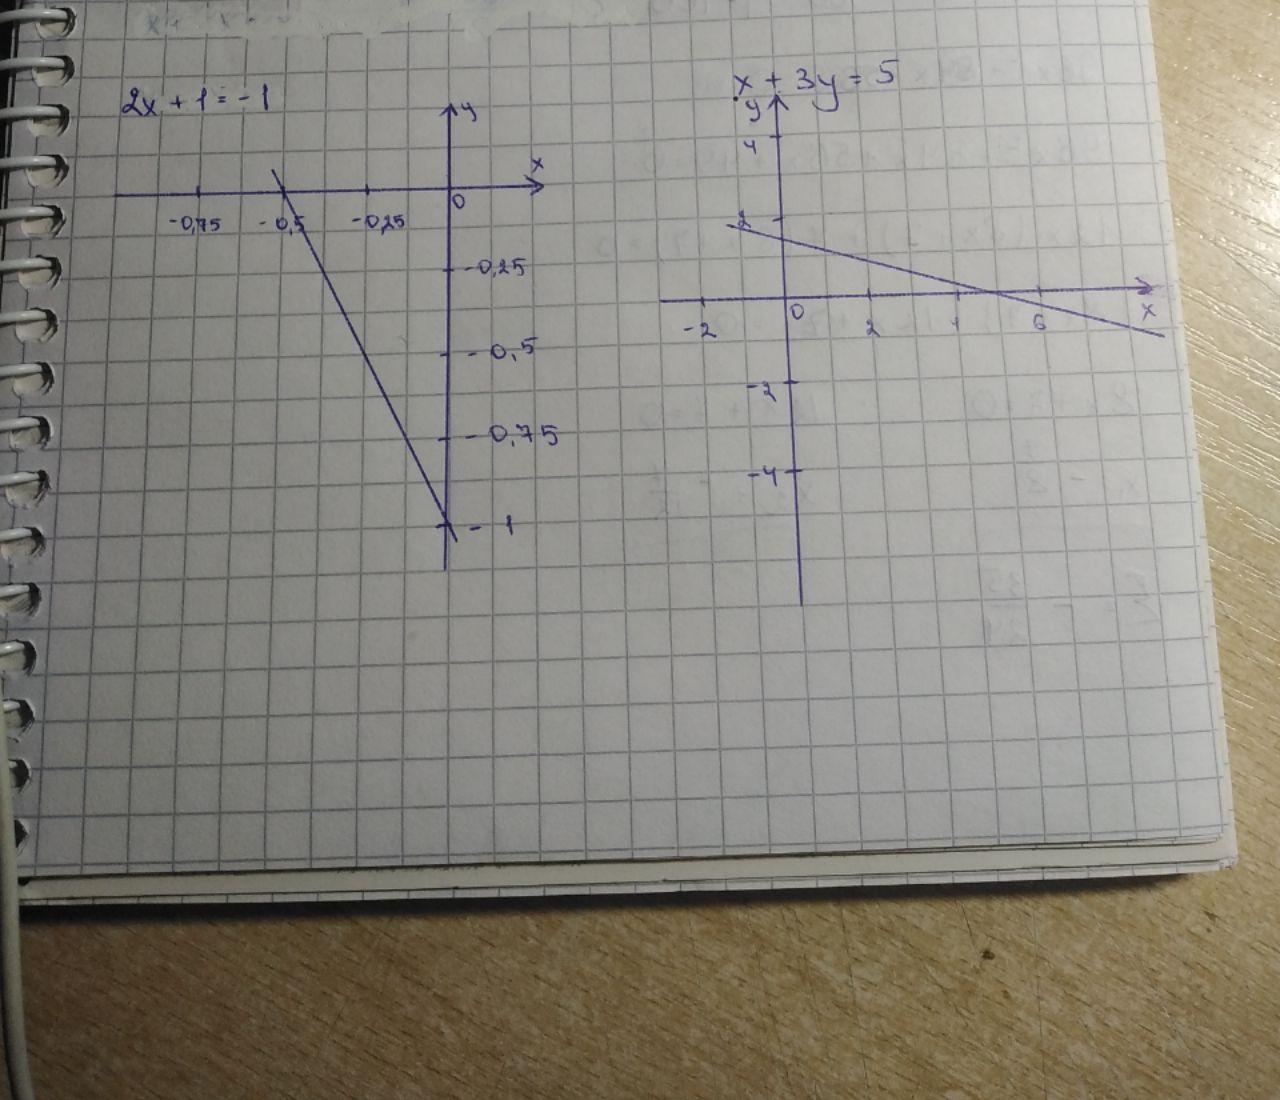 2x + 1 = -1
y
x
-0,75 -0,5 -0,25 0
-0,25
-0,5
-0,75
-1
x + 3y = 5
y
4
2
-2 0 2 4 6 x
-2
-4